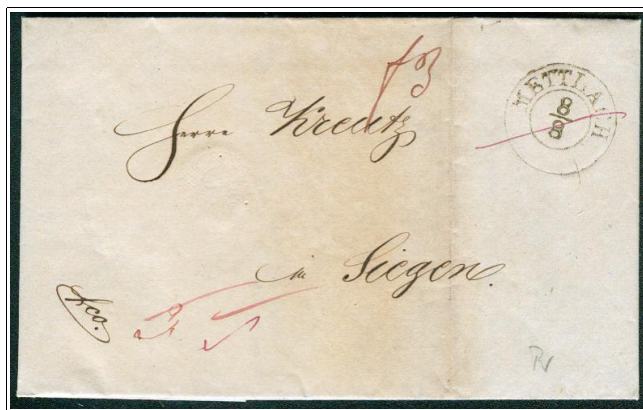 f3
METTLACH
8/8
Herrn Kreutz
in Siegen.
fco.